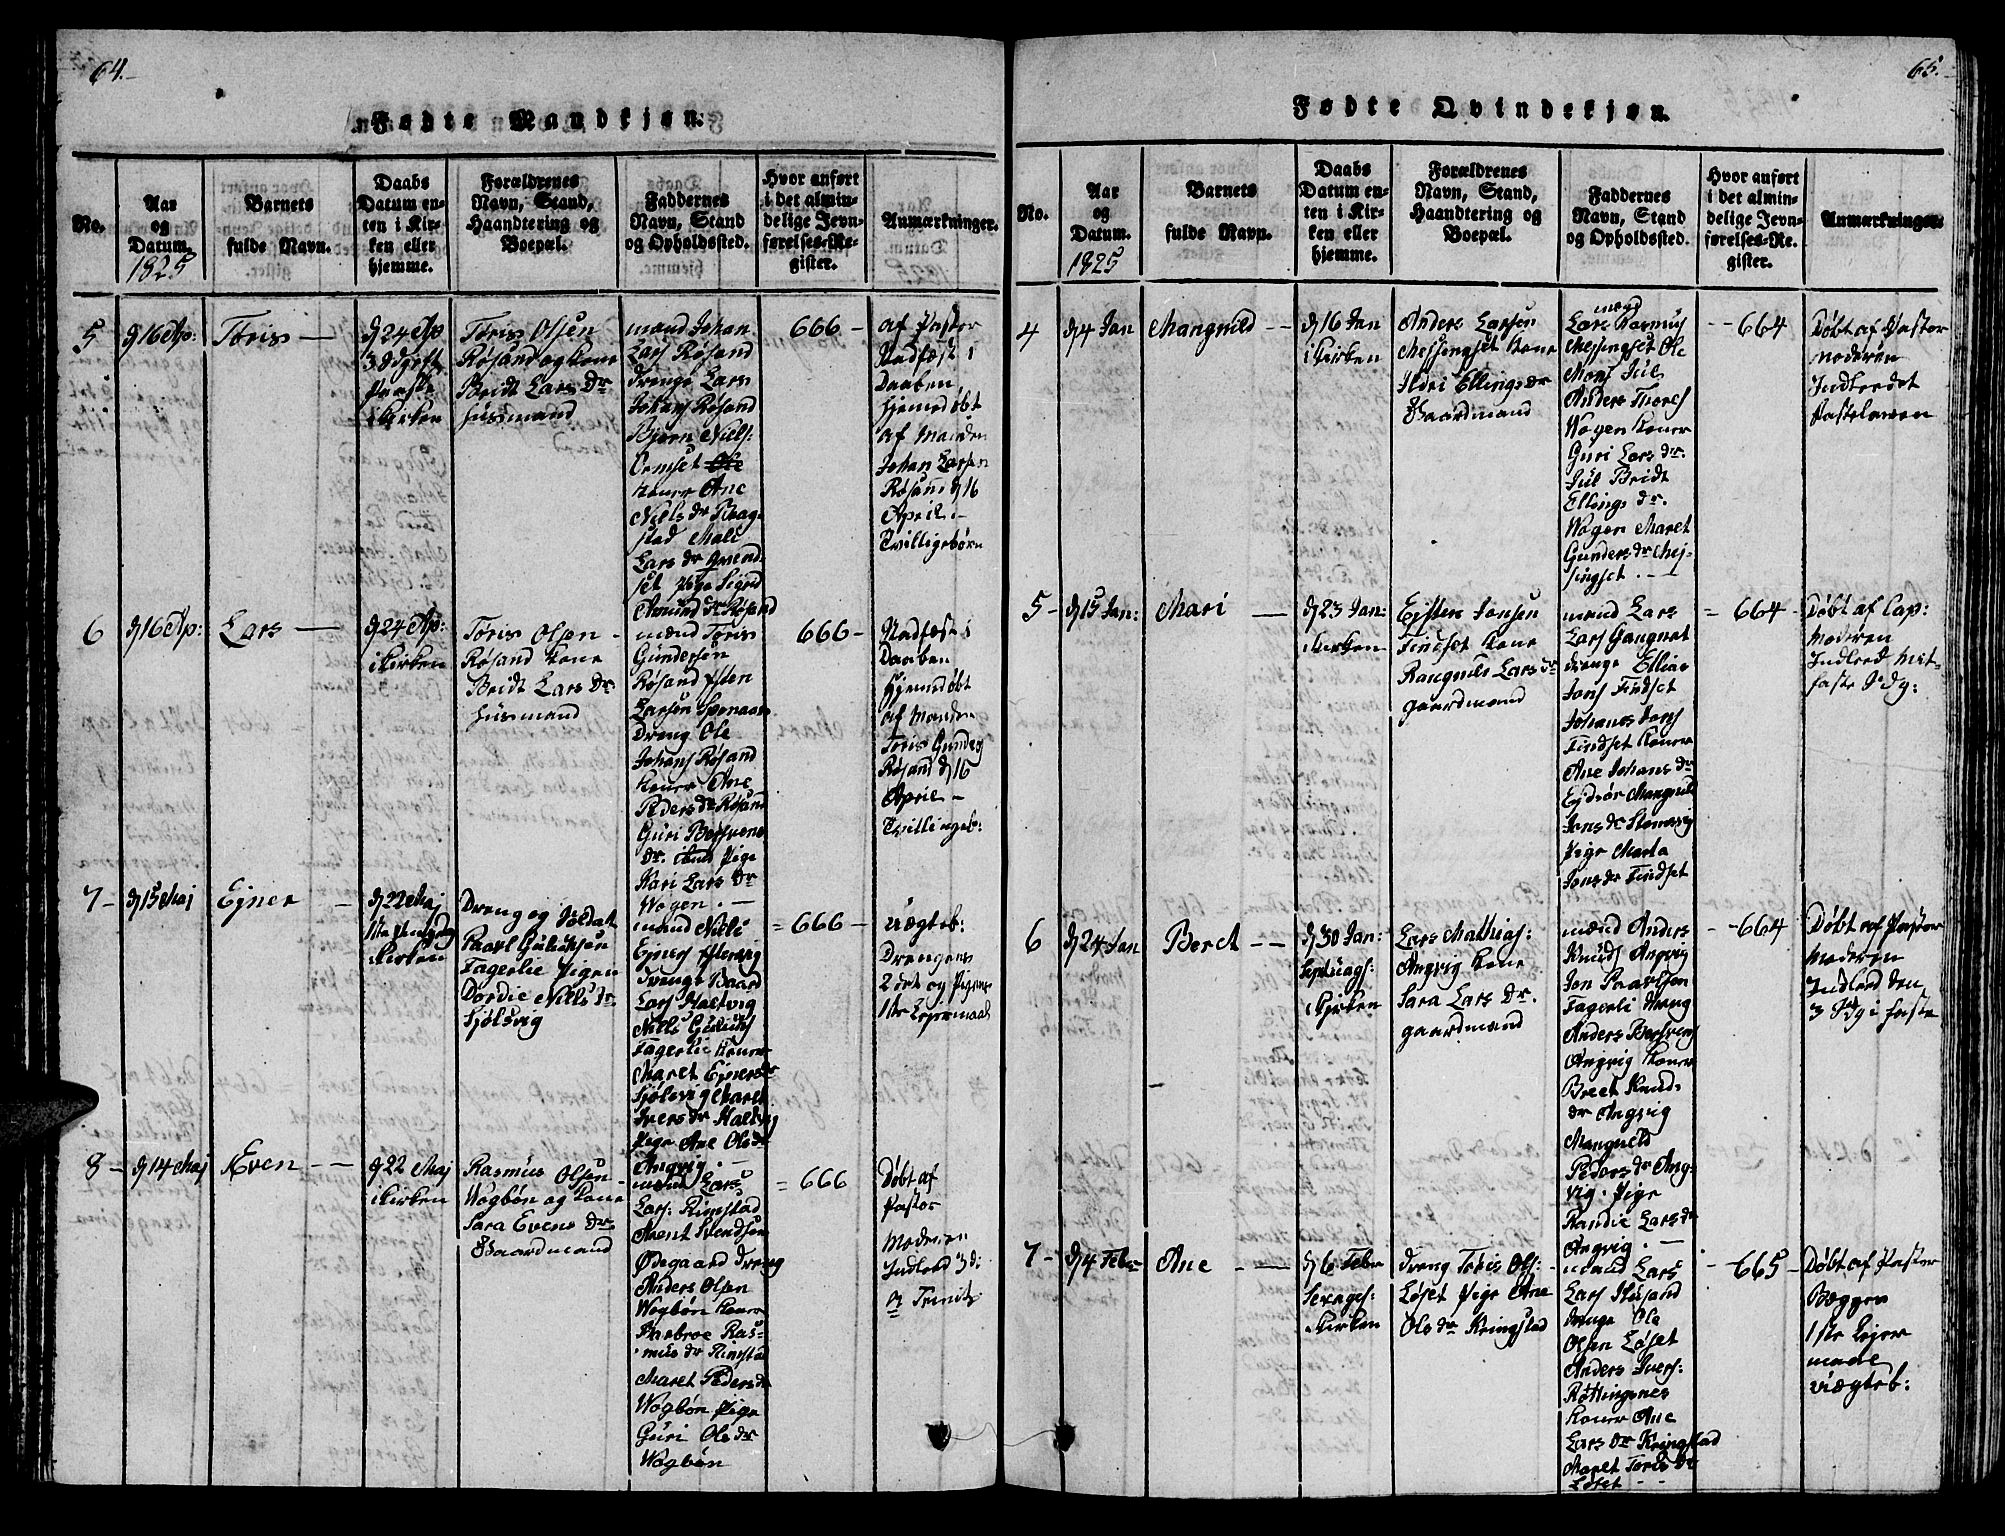 64.
Fødte Mandkjøn.
No.
Aar
og
Datum.
1825
Barnets
fulde Navn.
Daabs
Datum en-
ten i Kir-
ken eller
hjemme.
Forældrenes
Navn, Stand,
Haandtering og
Boepæl.
Faddernes
Navn, Stand
og Opholdssted.
Hvor anført
i det almin-
delige Jevn-
førelses-Re-
gister.
Anmærkninger.
5
d 16 Ap:
Töris —
d 24 Ap
3 Sdg eft
Paaske
i Kirken
Töris Olsen
Røsand og Kone
Bridt Lars Dr
Huusmand
mand Johan
Lars Røsand
drenge Lars
Johans Røsand
Bjørn Niels:
Ormset Ole
Koner Ane
Niels Dr
Mali
Lars Dr
set Pige Sigrid
Amund Dr Røsand
666 —
af Pastor
Stadfæst i
Daaben
Hjemedøbt
af Manden
Johan Larsen
Røsand d 16
April. —
Tvillingebörn
6
d 16 Ap:
Lars —
d 24 Ap:
i Kirken
Töris Olsen —
Røsand Kone
Bridt Lars Dr
Huusmand
mænd Töris
Gundersen
Røsand Esten
Larsen
Dreng Ole
Johans Røsand
Koner Ane
Peders Dr Røsand
Guri
Dr. Pige
Kari Lars Dr
Wogen. —
666 —
Stadfæst i
Daaben
Hjemedøbt
af Manden
Töris Gunders
Røsand d 16
April —
Tvillingeb:
7 —
d 15 Maj
Ejner —
d 22 Maj
1ste Pintsedag
i Kirken
Dreng og Soldat
Paavl Guliksen
Fagerlie Pigen
Dordie Nills Dr
Sjölsvig
mand Nills
Ejners
drenge Baard
Lars Haltvig
Nills Guliks
Fagerlie Koner
Maret Ejners Dr
Sjölsvig Maret
Ivers Dr Haltvig
Pige Ane Ols Dr
Angvig. —
= 666 —
Uægteb:
Drengens
2det og Pigens
1ste Lejermaal
8 —
d 14 Maj
Even —
d 22 Maj
i Kirken
Rasmus Olsen —
Wogbön og Kone
Sara Evens Dr
Gaardmand
mænd Lars
Lars: Rimstad
Arent Svendsen
Ødegaard Dreng
Anders Olsen
Wogbön Koner
Barbroe Ras-
mus Dr Rimstad
Maret Peders Dr
Wogbön Pige
Guri Ols Dr
Wogbön
= 666
Døbt af
Pastor
Moderen
Indled 3 d:
a Trinit:
65.
Fødte Qvindekjøn.
No.
Aar
og
Datum.
1825
Barnets
fulde Navn.
Daabs
Datum en-
ten i Kir-
ken eller
hjemme.
Forældrenes
Navn, Stand,
Haandtering og
Boepæl.
Faddernes
Navn, Stand
og Opholdssted.
Hvor anført
i det almin-
delige Jevn-
førelses-Re-
gister.
Anmærkninger.
4
d 4 Jan
Mangnild —
d 16 Jan
i Kirken
Anders Larsen
Messingset Kone
Ildri Ellings Dr
Gaardmand
mænd
Lars Rasmus
Messingset Ole
Mons Juul
Anders Thores
Wogen Koner
Guri Lars Dr.
Juul Bridt
Ellings Dr.
Wogen Maret
Gunders Dr Mes-
singset. —
— 664
Døbt af Pastor
Moderen
Indledet
Fastelaven
5 —
d 15 Jan:
Mari —
d 23 Jan:
i Kirken
Ejsten Jonsen
Findset Kone
Rangnild Lars Dr
gaardmand
mand Lars
Lars Gangnat
drenge Ellias
Jons Findset
Johanes Jons
Findset Koner
Ane Johans Dr
Mangnild
Jons Dr
Pige Marta
Jons Dr Findset
= 664 —
Döbt af Cap:
Moderen
Indled Mit-
faste Sdg:
6
d 24 Jan
Beret —
d 30 Jan:
Septuags:
i Kirken
Lars Mathias:
Angvig Kone
Sara Lars Dr.
gaardmand
mænd Anders
Knuds Angvig
Jon Paavlsen
Fagerli dreng
Anders
Angvig Koner
Bret Knuds
Dr Angvig
Mangnild
Peders Dr Ang-
vig. Pige
Randie Lars Dr
Angvig. —
— 664
Døbt af Pastor
Moderen
Indled den
3 Sdg i faste
7 —
d 4 Febr
Ane —
d 6 Febr
Sexages:
i Kirken
dreng Töris Ols: —
Löset Pige Ane
Ols Dr Kringstad
mand Lars
Lars
drenge Ole
Olsen Löset
Anders Ivers:
Röttingsnes
Koner Ane
Lars Dr Kringstad
Maret Töris Dr
Löset —
— 665 —
Döbt af Pastor
Begges
1ste Lejer
maal
Uægteb: